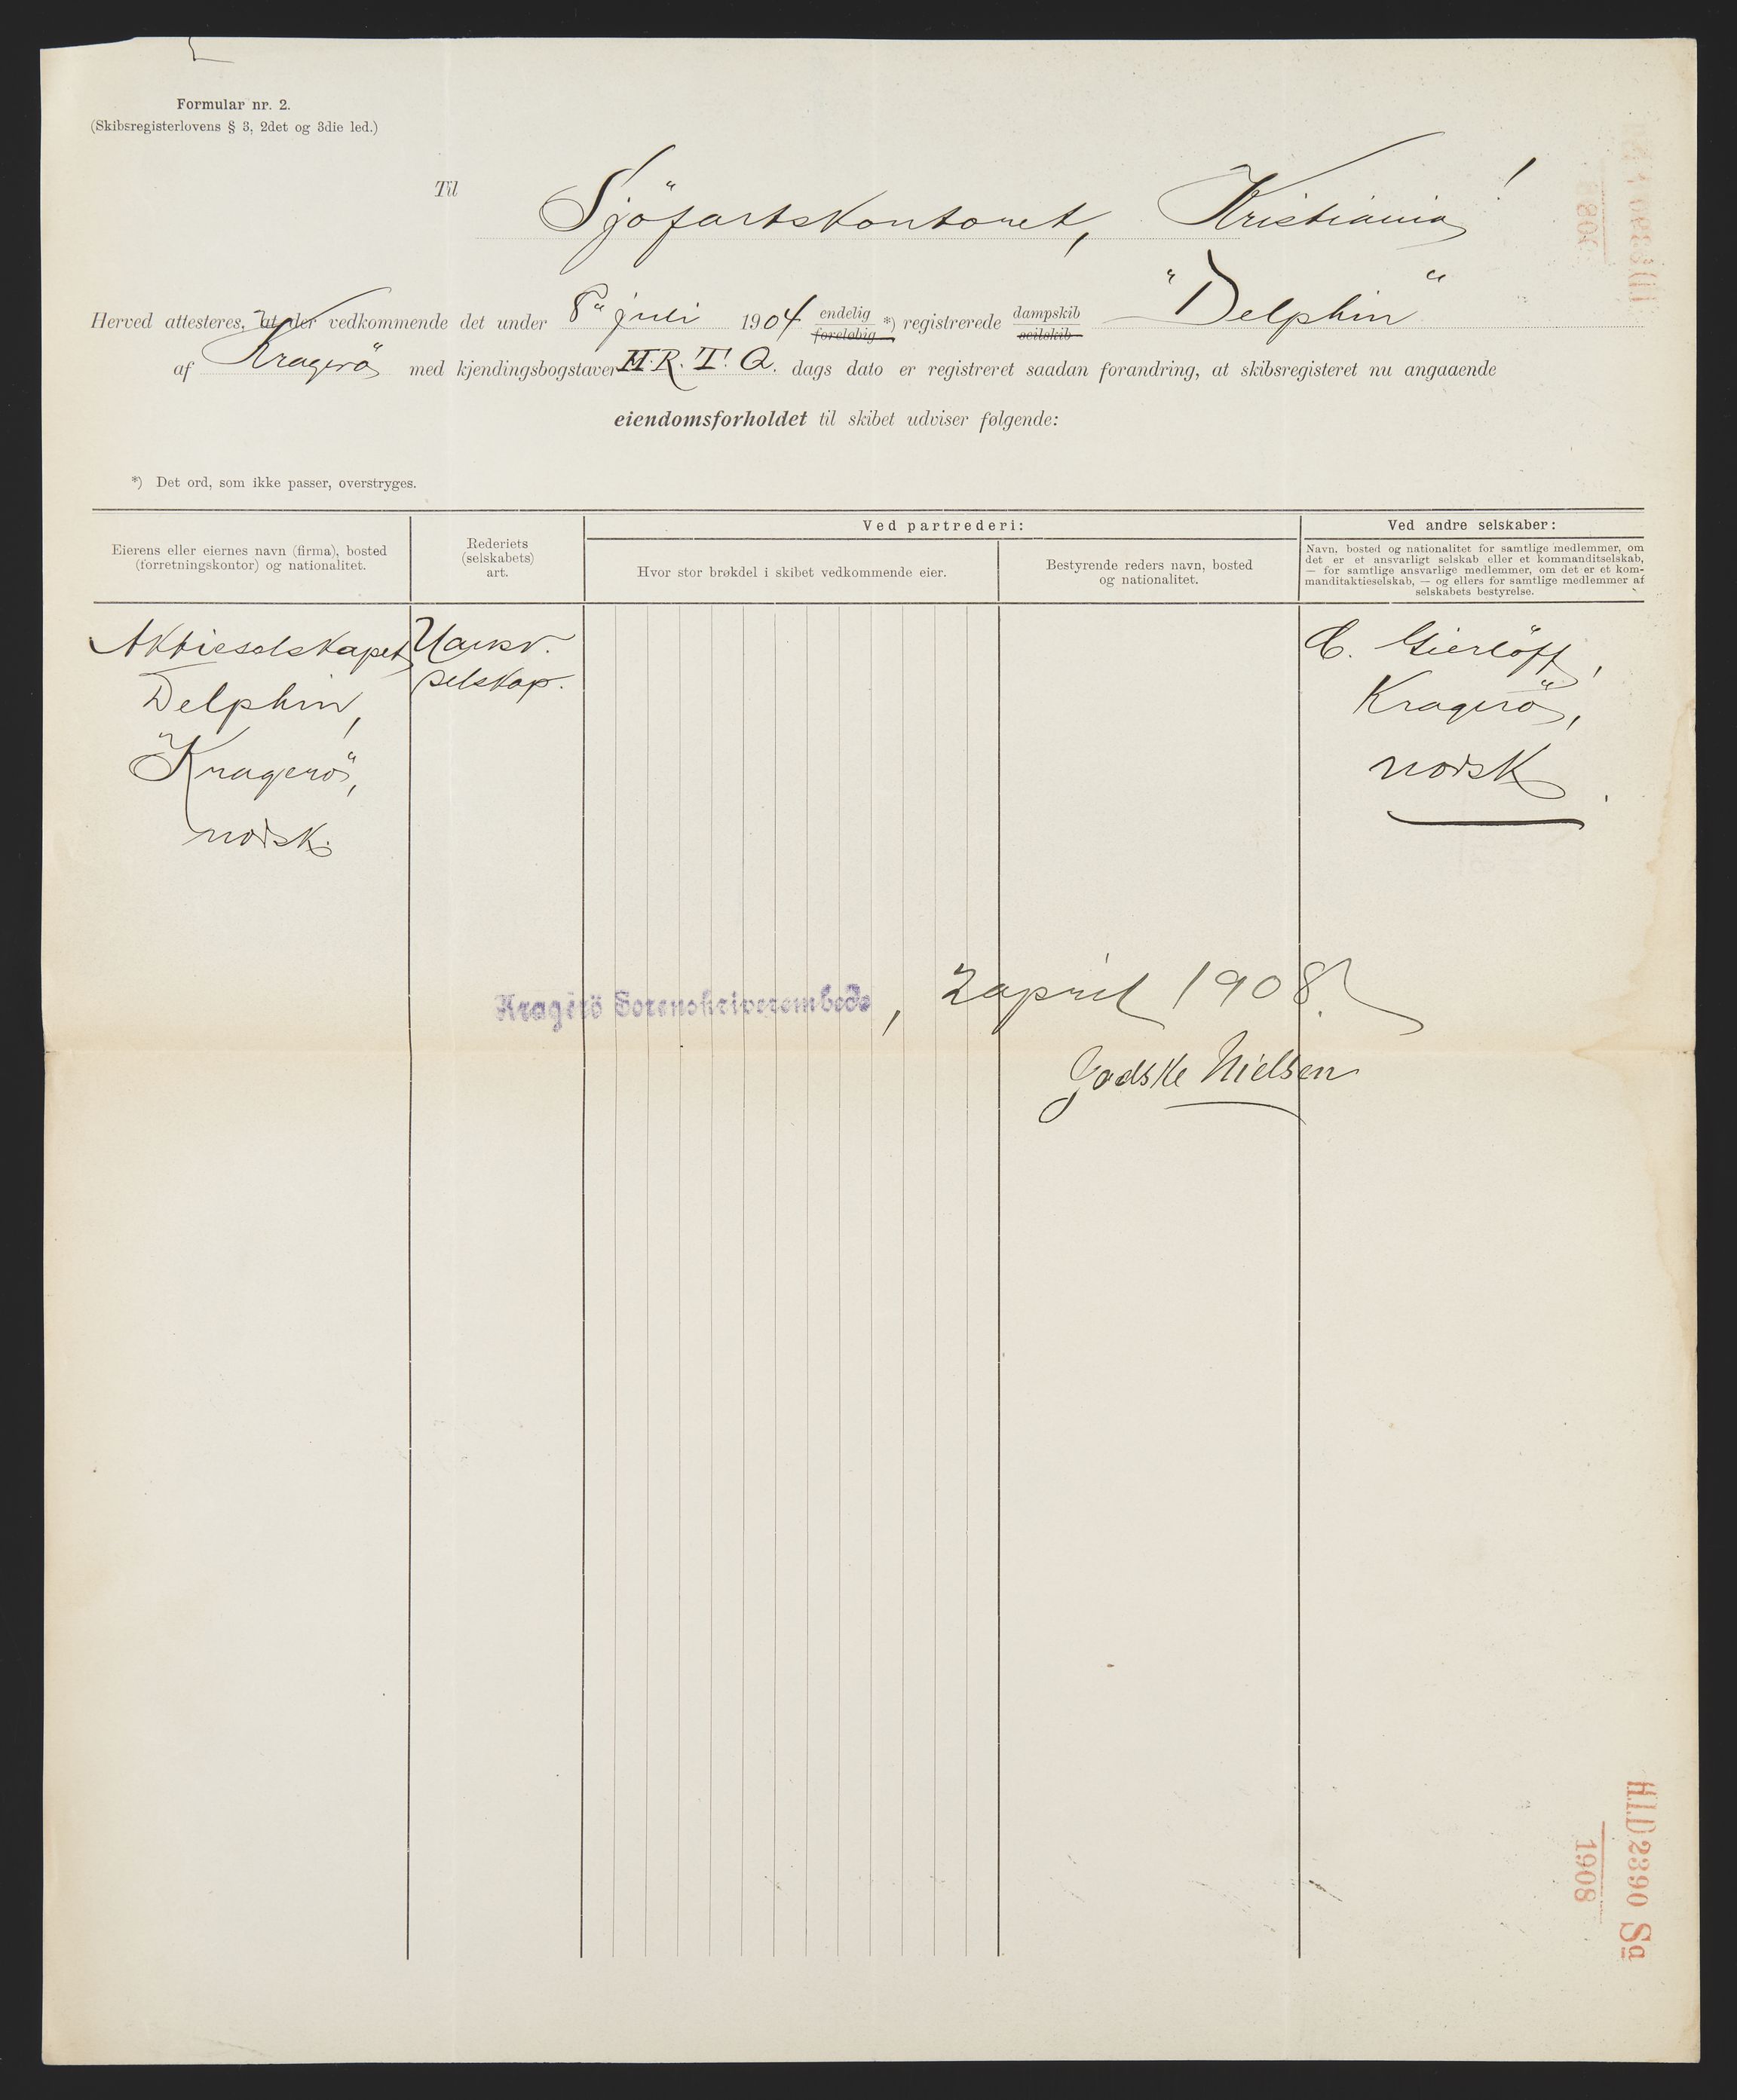 Formular nr. 2.
(Skibsregisterlovens § 3, 2det og 3die led.)
Til Sjöfartskontoret, Kristiania!
Herved attesteres, at der vedkommende det under 8" juli 1904 endelig foreløbig *) registrerede dampskib seilskib "Delphin"
af Kragerö med kjendingsbogstaver H.R.T.Q. dags dato er registreret saadan forandring, at skibsregisteret nu angaaende
eiendomsforholdet til skibet udviser følgende:
*) Det ord, som ikke passer, overstryges.
Eierens eller eiernes navn (firma), bosted
(forretningskontor) og nationalitet.
Rederiets
(selskabets)
art.
Ved partrederi:
Hvor stor brøkdel i skibet vedkommende eier.
Bestyrende reders navn, bosted
og nationalitet.
Ved andre selskaber:
Navn, bosted og nationalitet for samtlige medlemmer, om
det er et ansvarligt selskab eller et kommanditselskab,
— for samtlige ansvarlige medlemmer, om det er et kom-
manditaktieselskab, — og ellers for samtlige medlemmer af
selskabets bestyrelse.
Aktieselskapet
Delphin,
Kragerö,
norsk.
Uansv.
selskap.
C. Gierlöff,
Kragerö,
norsk
Kragerö Sorenskriverembede, 2 april 1908.
Godske Nielsen
HID2390 Sa
1908